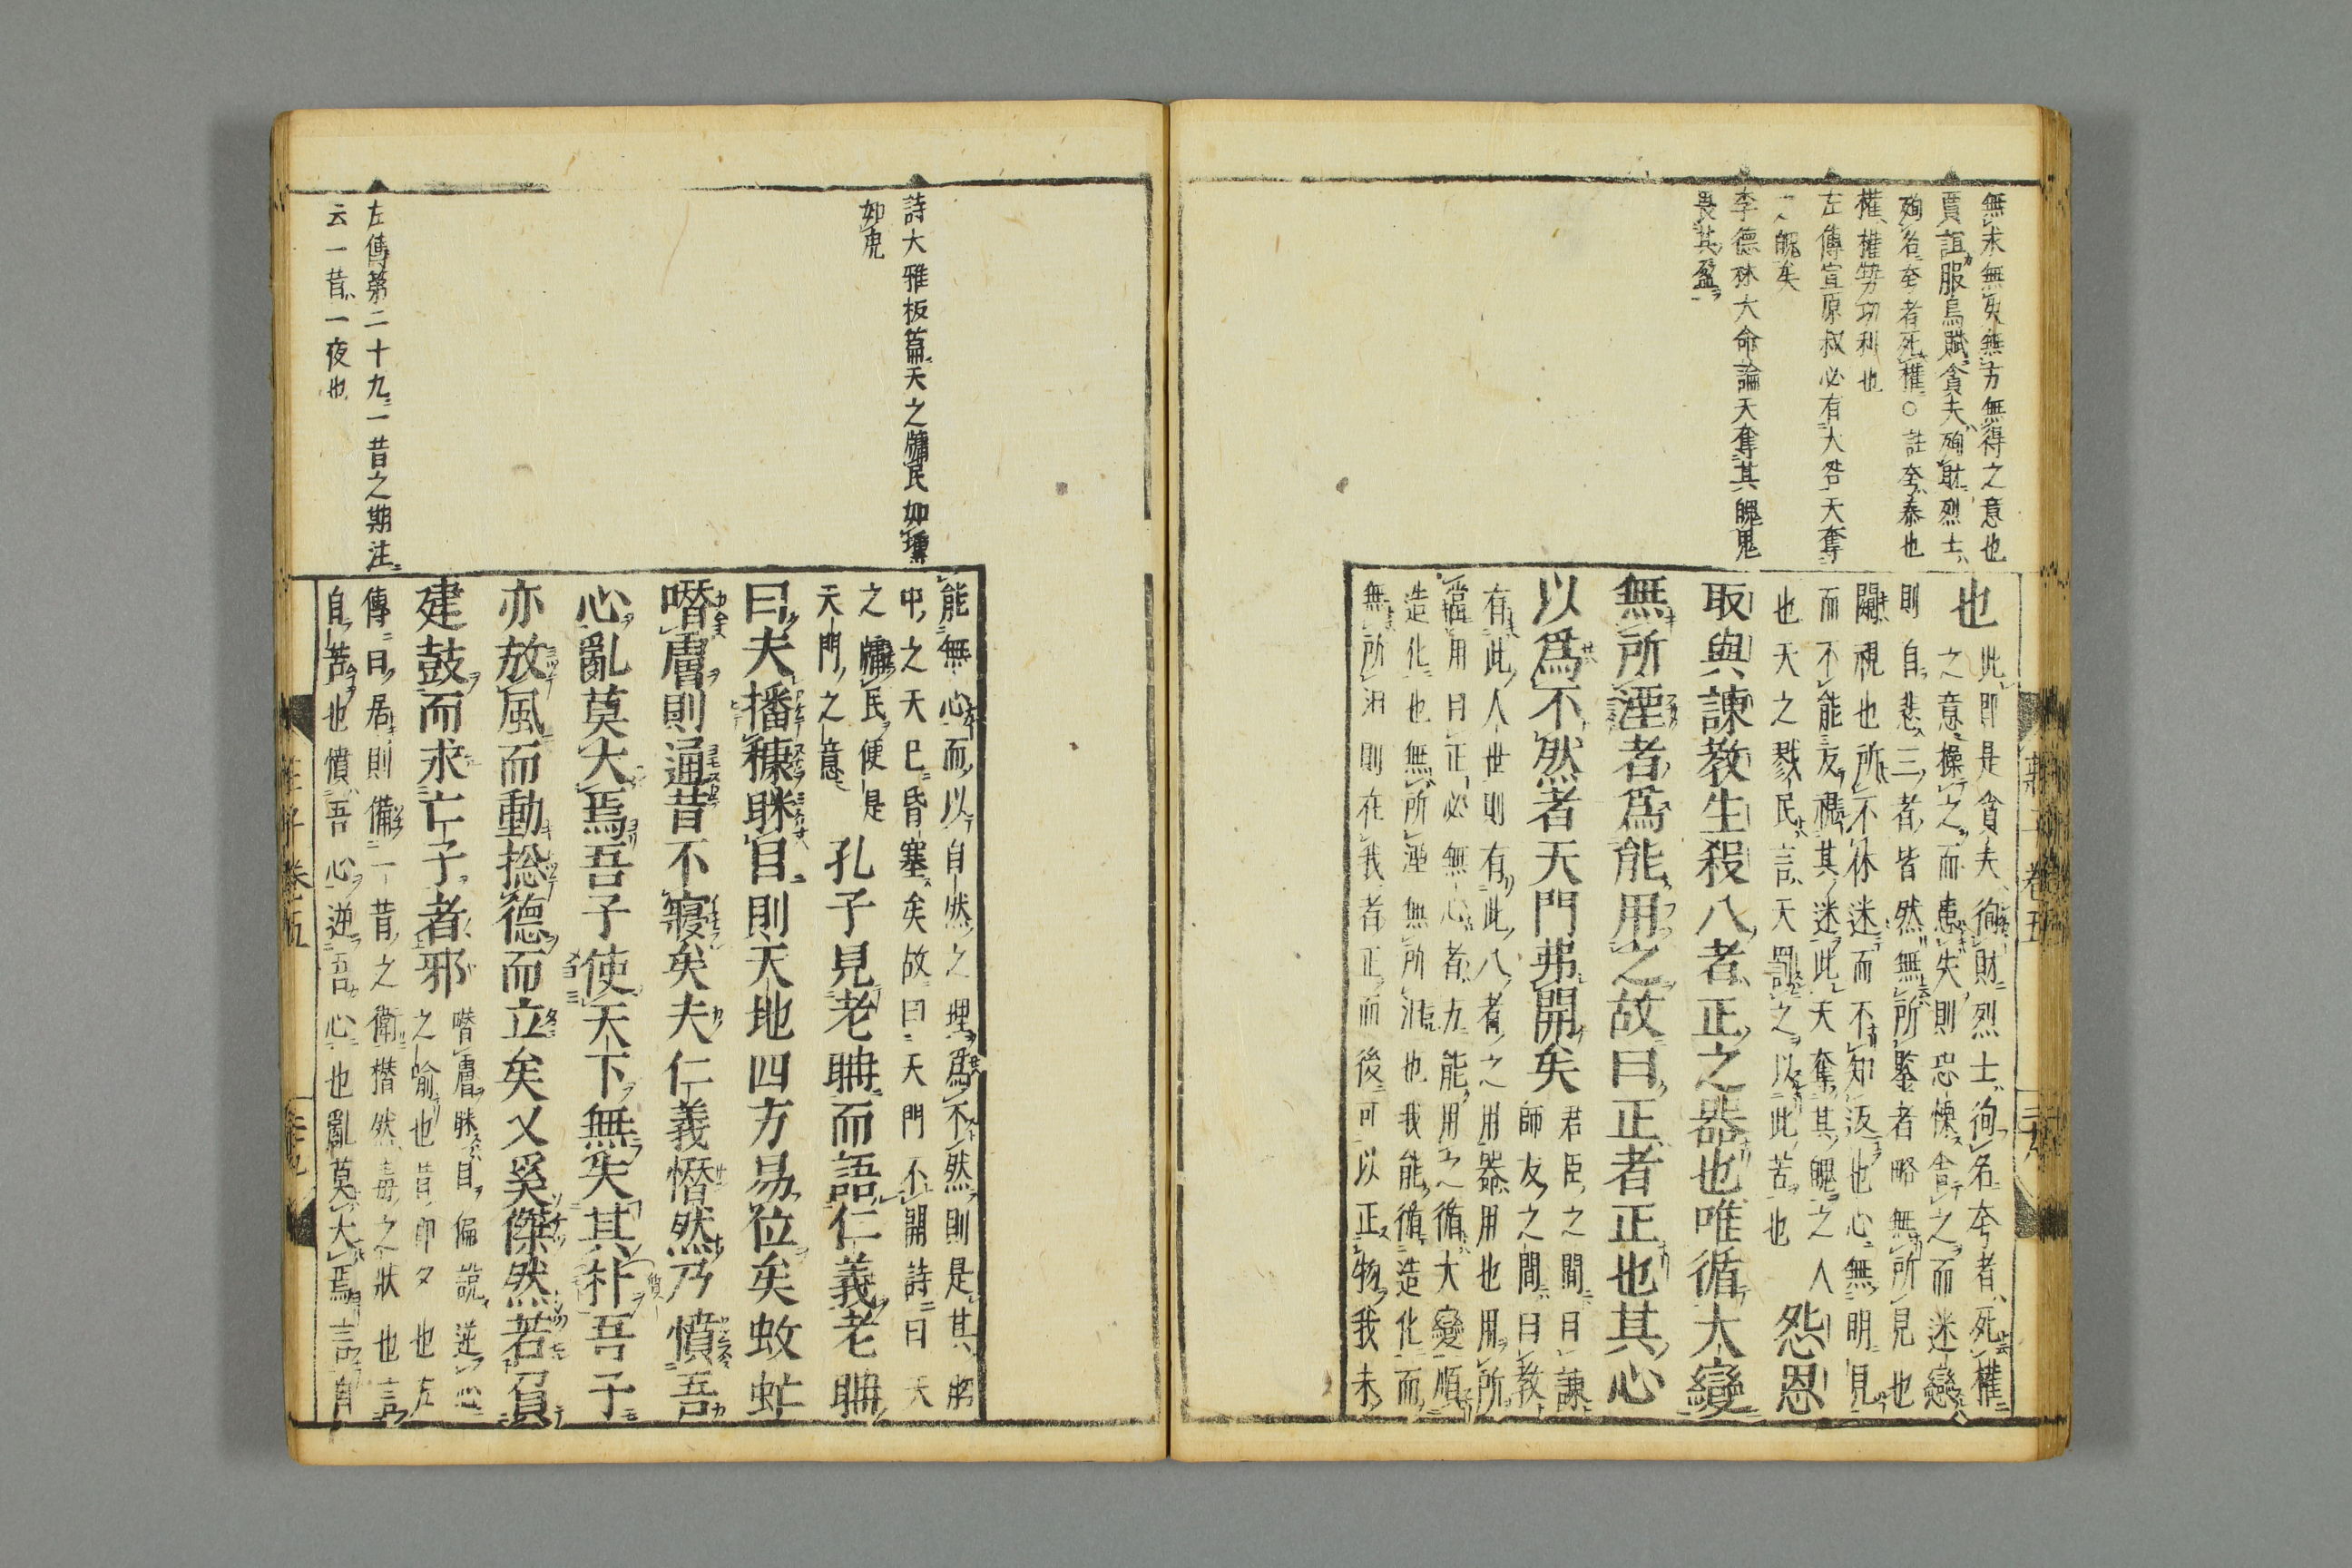 無求無與無方無得之意也
賈誼服鳥賦貪夫殉財烈士
殉名夸者死權○註夸泰也
權權勢功利也
左傳宣原叔必有大咎天奪
之魄矣
李德林大命論天奪其魄鬼
畏其盈
也此即是貪夫徇財烈士徇名夸者死權
之意操之而患失則恐慄舍之而迷戀
則自悲三者皆然無所鑒者略無所見也
闚視也所不休迷而不知返也心無明見
而不能反視其迷此天奪其魄之人
也天之戮民言天罰之以此苦也
怨恩
取與諫教生殺八者正之器也唯循大變
無所湮者爲能用之故曰正者正也其心
以爲不然者天門弗開矣
君臣之間曰諫
師友之間曰教
有此人世則有此八者之用器用也用所
當用曰正必無心者方能用之循大變順
造化也無所湮無所汨也我能循造化而
無所汨則在我者正而後可以正物我未
莊子 卷五
三十九
能無心而以自然之理爲不然則是其胸
中之天已昏塞矣故曰天門不開詩曰天
之牖民便是
天門之意
孔子見老聃而語仁義老聃
曰夫播穅眯目則天地四方易位矣蚊虻
噆膚則通昔不寢矣夫仁義憯然乃憤吾
心亂莫大焉吾子使天下無失其朴吾子
亦放風而動揔德而立矣又奚傑然若負
建鼓而求亡子者邪
噆膚眯目偏說逆心
之喻也昔即夕也左
傳曰居則備一昔之衛憯然毒之狀也言
自苦也憤吾心逆吾心也亂莫大焉言自
詩大雅板篇天之牖民如壎
如箎
左傳第二十九一昔之期注
云一昔一夜也